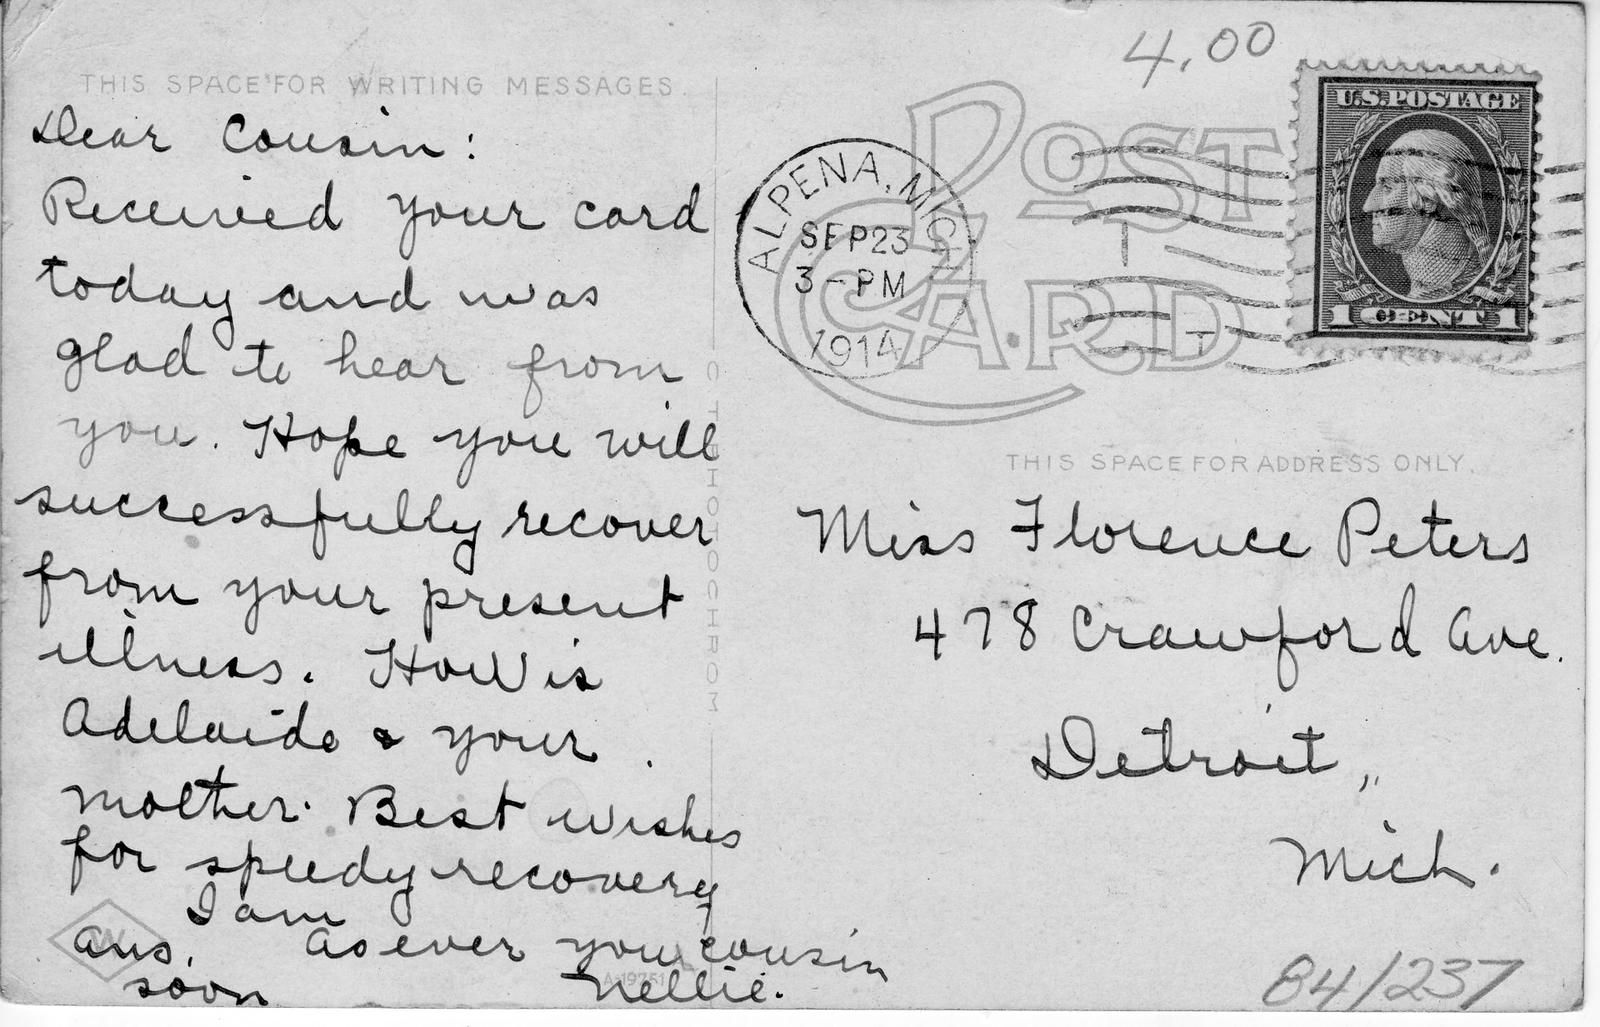 4.00
THIS SPACE FOR WRITING MESSAGES.
Dear Cousin:
Received your card
today and was
glad to hear from
you. Hope you will
successfully recover
from your present
illness. How is
Adelaide & your
mother. Best wishes
for speedy recovery
I am
As ever you cousin
Nellie.
Ans.
soon
W
A-19751
C.T. PHOTOCHROM
POST CARD
ALPENA, MICH.
SEP 23
3-PM
1914
U.S. POSTAGE
1 CENT 1
THIS SPACE FOR ADDRESS ONLY.
Miss Florence Peters
478 Crawford Ave.
Detroit,,
Mich.
84/237